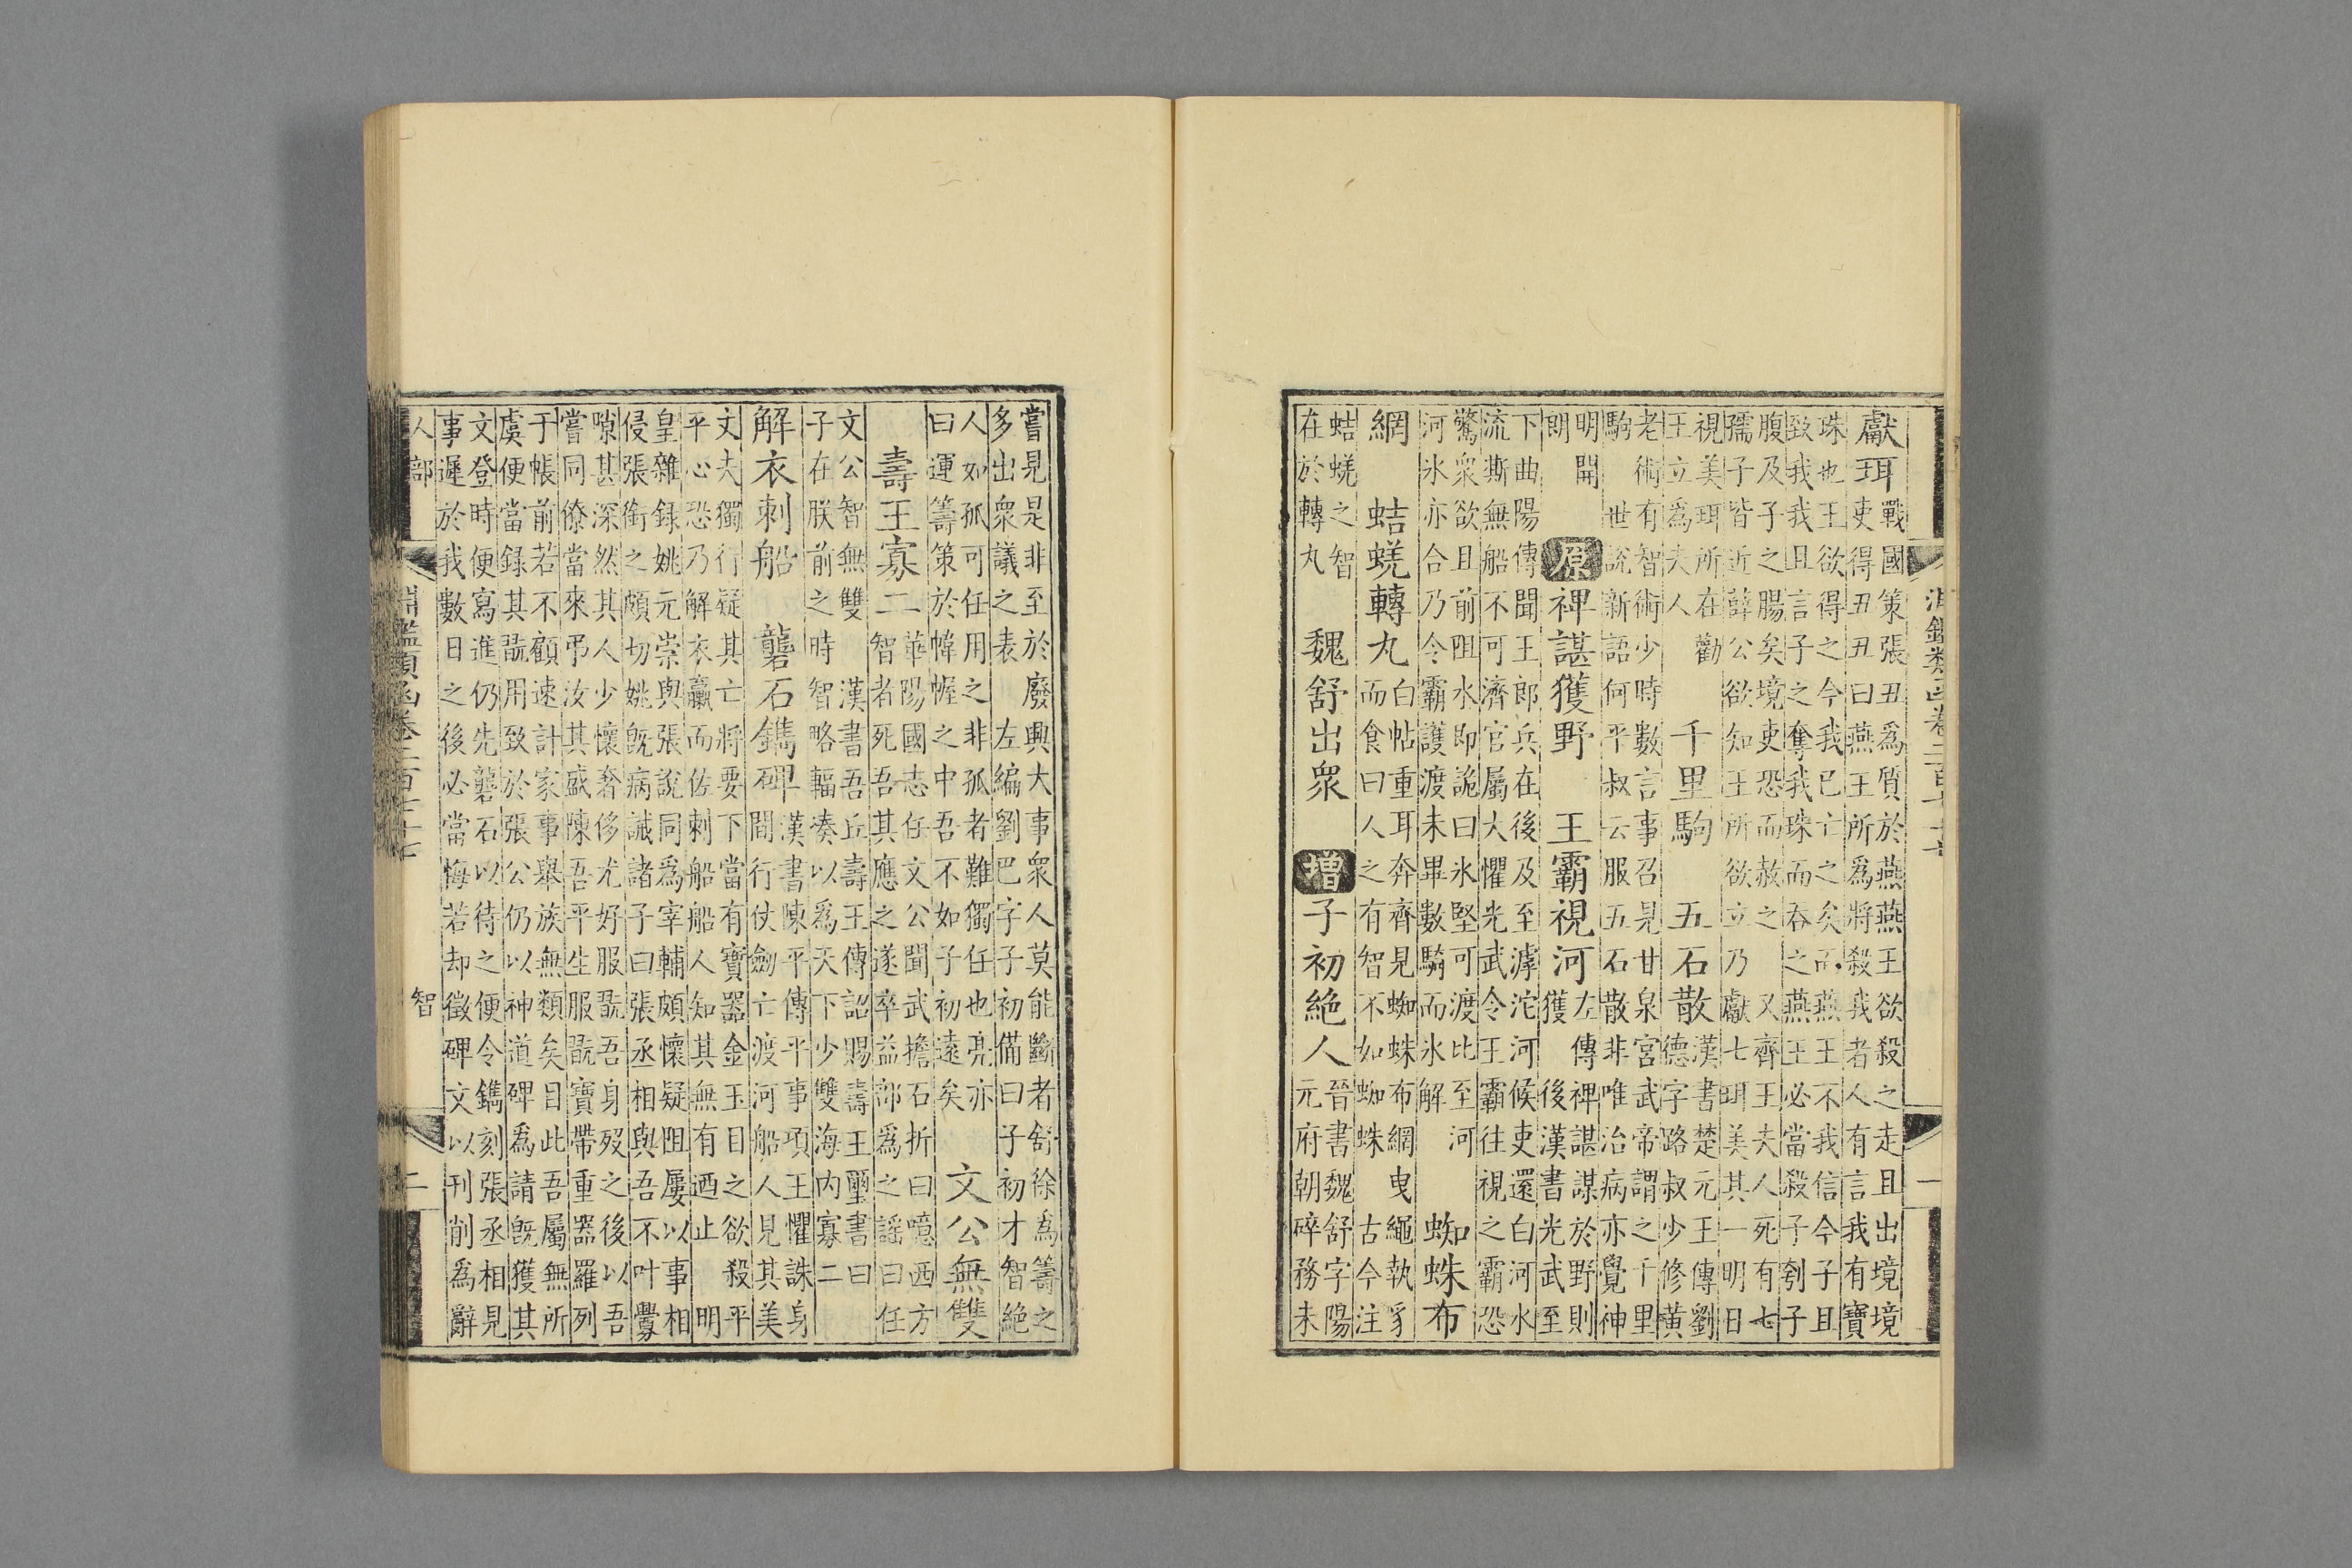 淵鑑類函卷二百七十七 一
獻珥
戰國策張丑為質於燕燕王欲殺之走且出境境
吏得丑丑曰燕王所為將殺我者人有言我有寶
珠也王欲得之今我已亡之矣而燕王不我信今子且
致我我且言子之奪我珠而吞之燕王必當殺子刳子
腹及子之腸矣境吏恐而赦之 又齊王夫人死有七
孺子皆近薛公欲知王所欲立乃獻七珥美其一明日
視美珥所在勸
王立為夫人
千里駒 五石散
漢書楚元王傳劉
德字路叔少修黃
老術有智術少時數言事召見甘泉宮武帝謂之千里
駒 世說新語何平叔云服五石散非唯治病亦覺神
明開
朗
原 裨諶獲野 王霸視河
左傳裨諶謀於野則
獲 後漢書光武至
下曲陽傳聞王郎兵在後及至滹沱河候吏還白河水
流澌無船不可濟官屬大懼光武令王霸往視之霸恐
驚衆欲且前阻水即詭曰氷堅可渡比至河
河氷亦合乃令霸護渡未畢數騎而氷解
蜘蛛布
網 蛣蜣轉丸
白帖重耳奔齊見蜘蛛布網曳繩執豸
而食曰人之有智不如蜘蛛 古今注
蛣蜣之智
在於轉丸
魏舒出衆 增 子初絶人
晉書魏舒字陽
元府朝碎務未
嘗見是非至於廢興大事衆人莫能斷者舒徐為籌之
多出衆議之表 左編劉巴字子初備曰子初才智絶
人如孤可任用之非孤者難獨任也亮亦
曰運籌策於幃幄之中吾不如子初遠矣
文公無雙
壽王寡二
華陽國志任文公聞武擔石折曰噫西方
智者死吾其應之遂卒益部為之謡曰任
文公智無雙 漢書吾丘壽王傳詔賜壽王璽書曰
子在朕前之時智略輻凑以為天下少雙海内寡二
解衣刺船 礱石鐫碑
漢書陳平傳平事項王懼誅身
間行仗劒亡渡河船人見其美
丈夫獨行疑其亡將要下當有寶器金玉目之欲殺平
平心恐乃解衣臝而佐刺船船人知其無有廼止 明
皇雜録姚元崇與張說同為宰輔頗懷疑阻屢以事相
侵張銜之頗切姚旣病誡諸子曰張丞相與吾不叶釁
隙甚深然其人少懷奢侈尤好服翫吾身殁之後以吾
嘗同僚當來弔汝其盛陳吾平生服翫寶帶重器羅列
于帳前若不顧速計家事舉族無類矣目此吾屬無所
虞便當録其翫用致於張公仍以神道碑為請旣獲其
文登時便寫進仍先礱石以待之便令鐫刻張丞相見
事遲於我數日之後必當悔若却徵碑文以刊削為辭
人部 淵鑑類函卷二百七十七 智 二